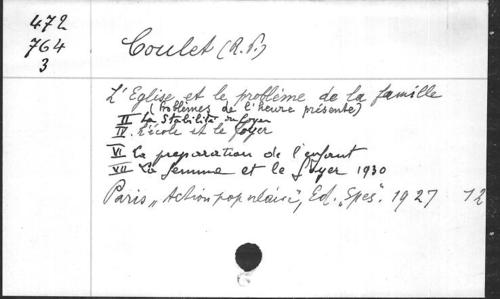 472
764
3
Coulet (R.P.)
L'Eglise et le problème de la famille
(Problèmes de l'heure présente)
II La Stabilité du foyer
IV. L'école et le foyer
VI La preparation de l'enfant
VII La femme et le foyer 1930
Paris „Action populaire", Ed. „Spes". 1927 12